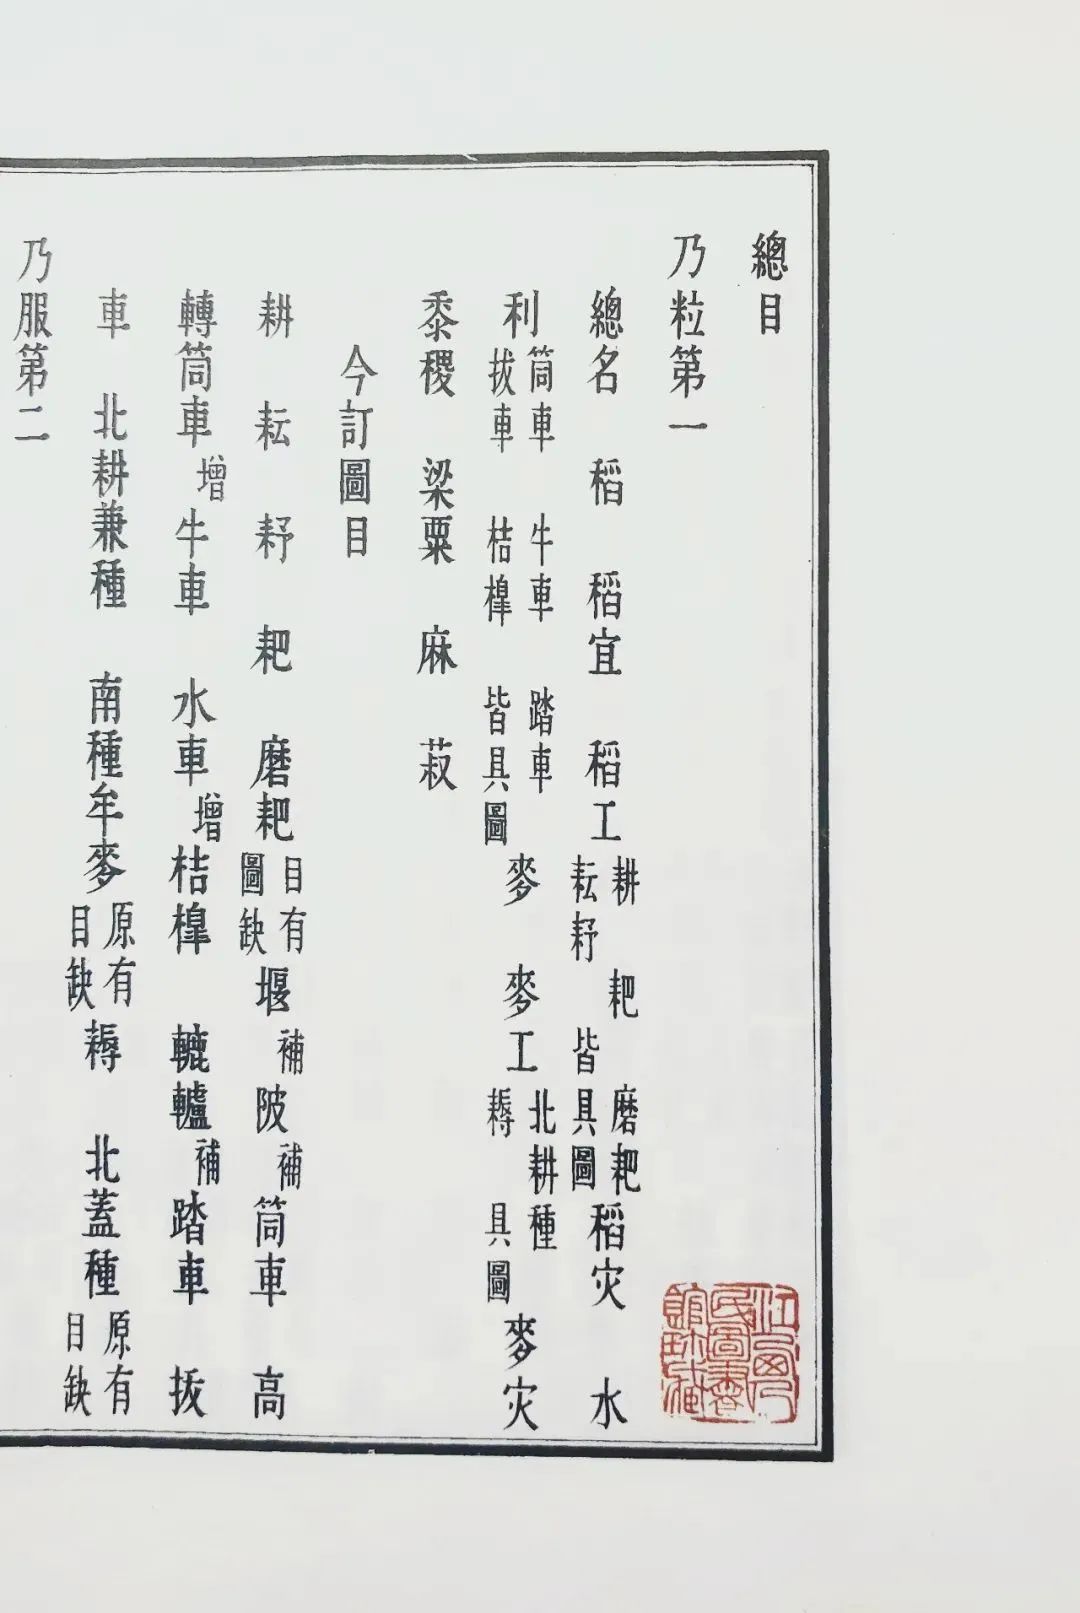 總目
乃粒第一
總名 稻 稻宜 稻工 耕 耙 磨耙 耘耔 皆具圖 稻灾 水
利 筒車 牛車 踏車 拔車 桔槹 皆具圖 麥 麥工 北耕種 耨 具圖 麥灾
黍稷 梁粟 麻 菽
今訂圖目
耕 耘 耔 耙 磨耙 目有圖缺 堰補 陂補 筒車 高
轉筒車增 牛車 水車增 桔槹 轆轤補 踏車 拔
車 北耕兼種 南種牟麥 原有目缺 耨 北蓋種 原有目缺
乃服第二